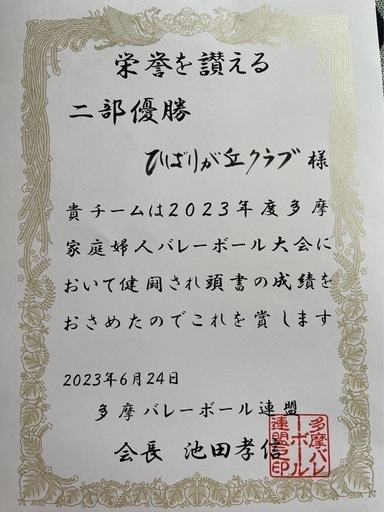 栄誉を讃える
二部優勝
ひばりが丘クラブ 様
貴チームは2023年度多摩
家庭婦人バレーボール大会に
おいて健闘され頭書の成績を
おさめたのでこれを賞します
2023年6月24日
多摩バレーボール連盟
会長 池田孝信
多摩バレ
ーボール
連盟之印